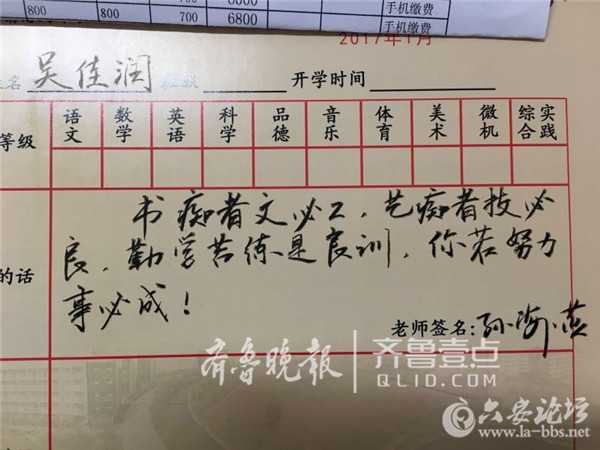 手机缴费
800 800 700 6800 手机缴费
2017年1月
名 吴佳润 开学时间
等级 语文 数学 英语 科学 品德 音乐 体育 美术 微机 综合实践
书痴者文必工，艺痴者技必
良，勤学苦练是良训，你若努力
的话
事必成！
老师签名：孙海燕
齐鲁晚报 齐鲁壹点
QLID.COM
六安论坛
www.la-bbs.net